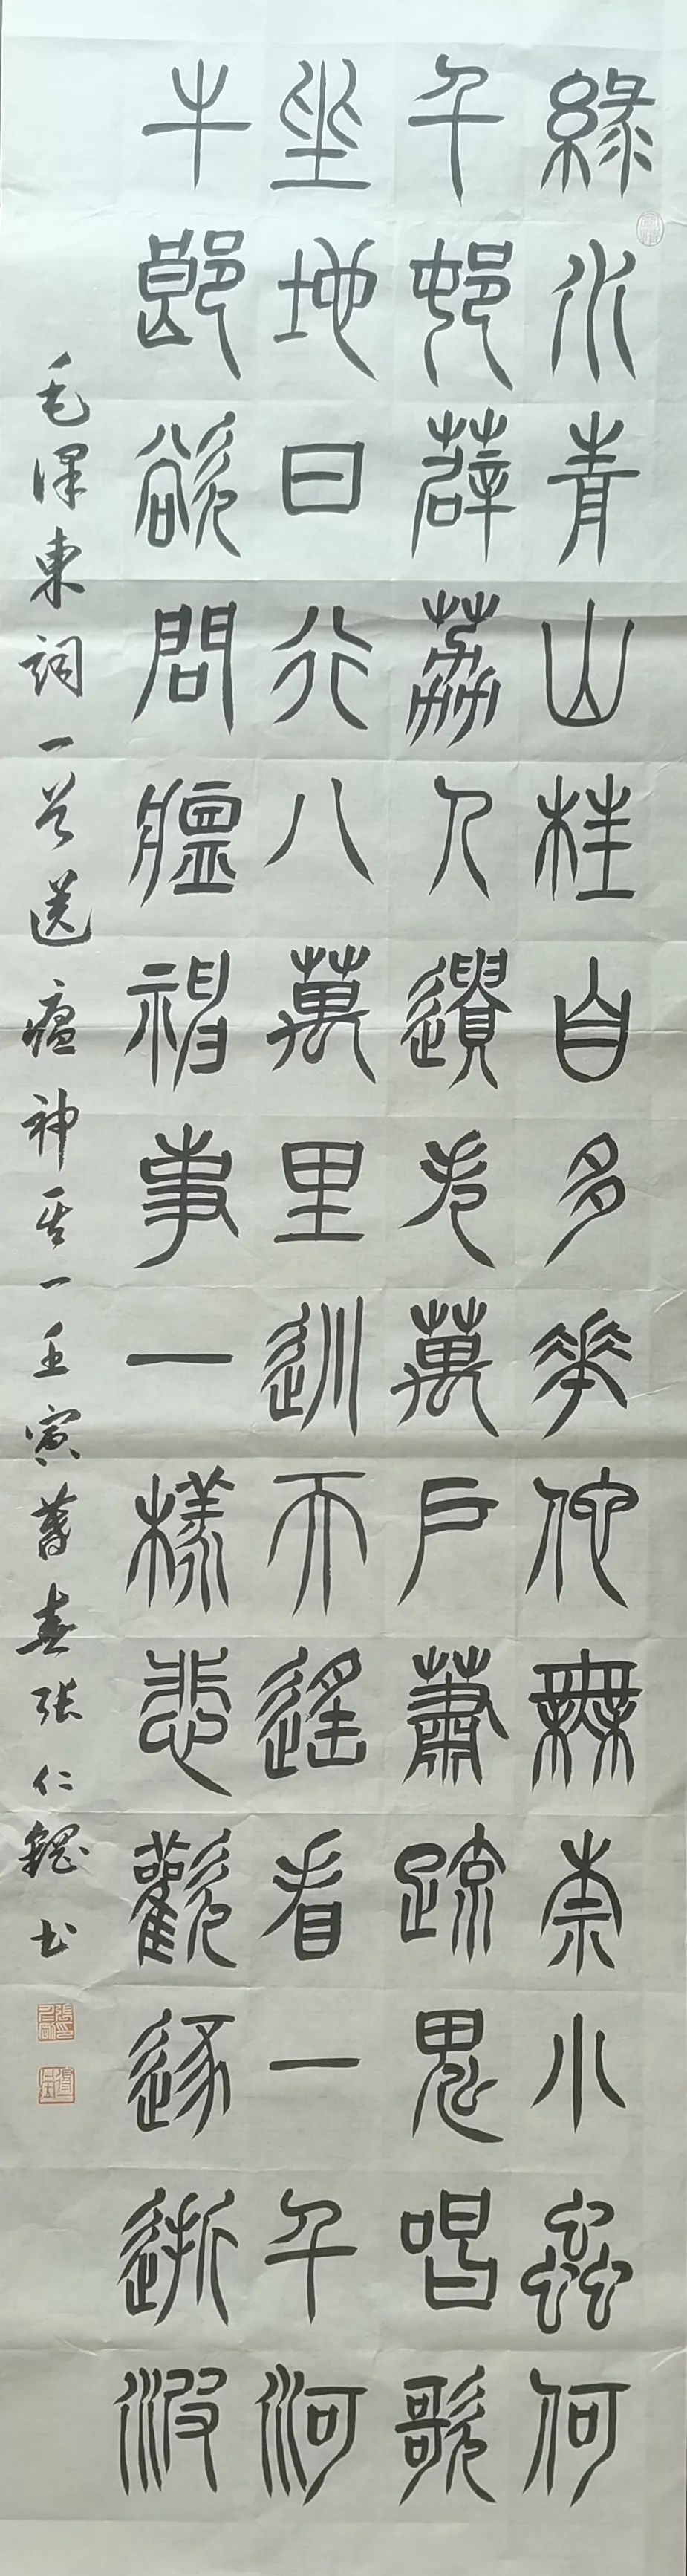 綠水青山枉自多華佗無奈小蟲何
千邨薜荔人遺矢萬戶蕭疏鬼唱歌
坐地日行八萬里巡天遙看一千河
牛郎欲問瘟神事一樣悲歡逐逝波
毛澤東詞一首送瘟神其一壬寅暮春張仁鋼书